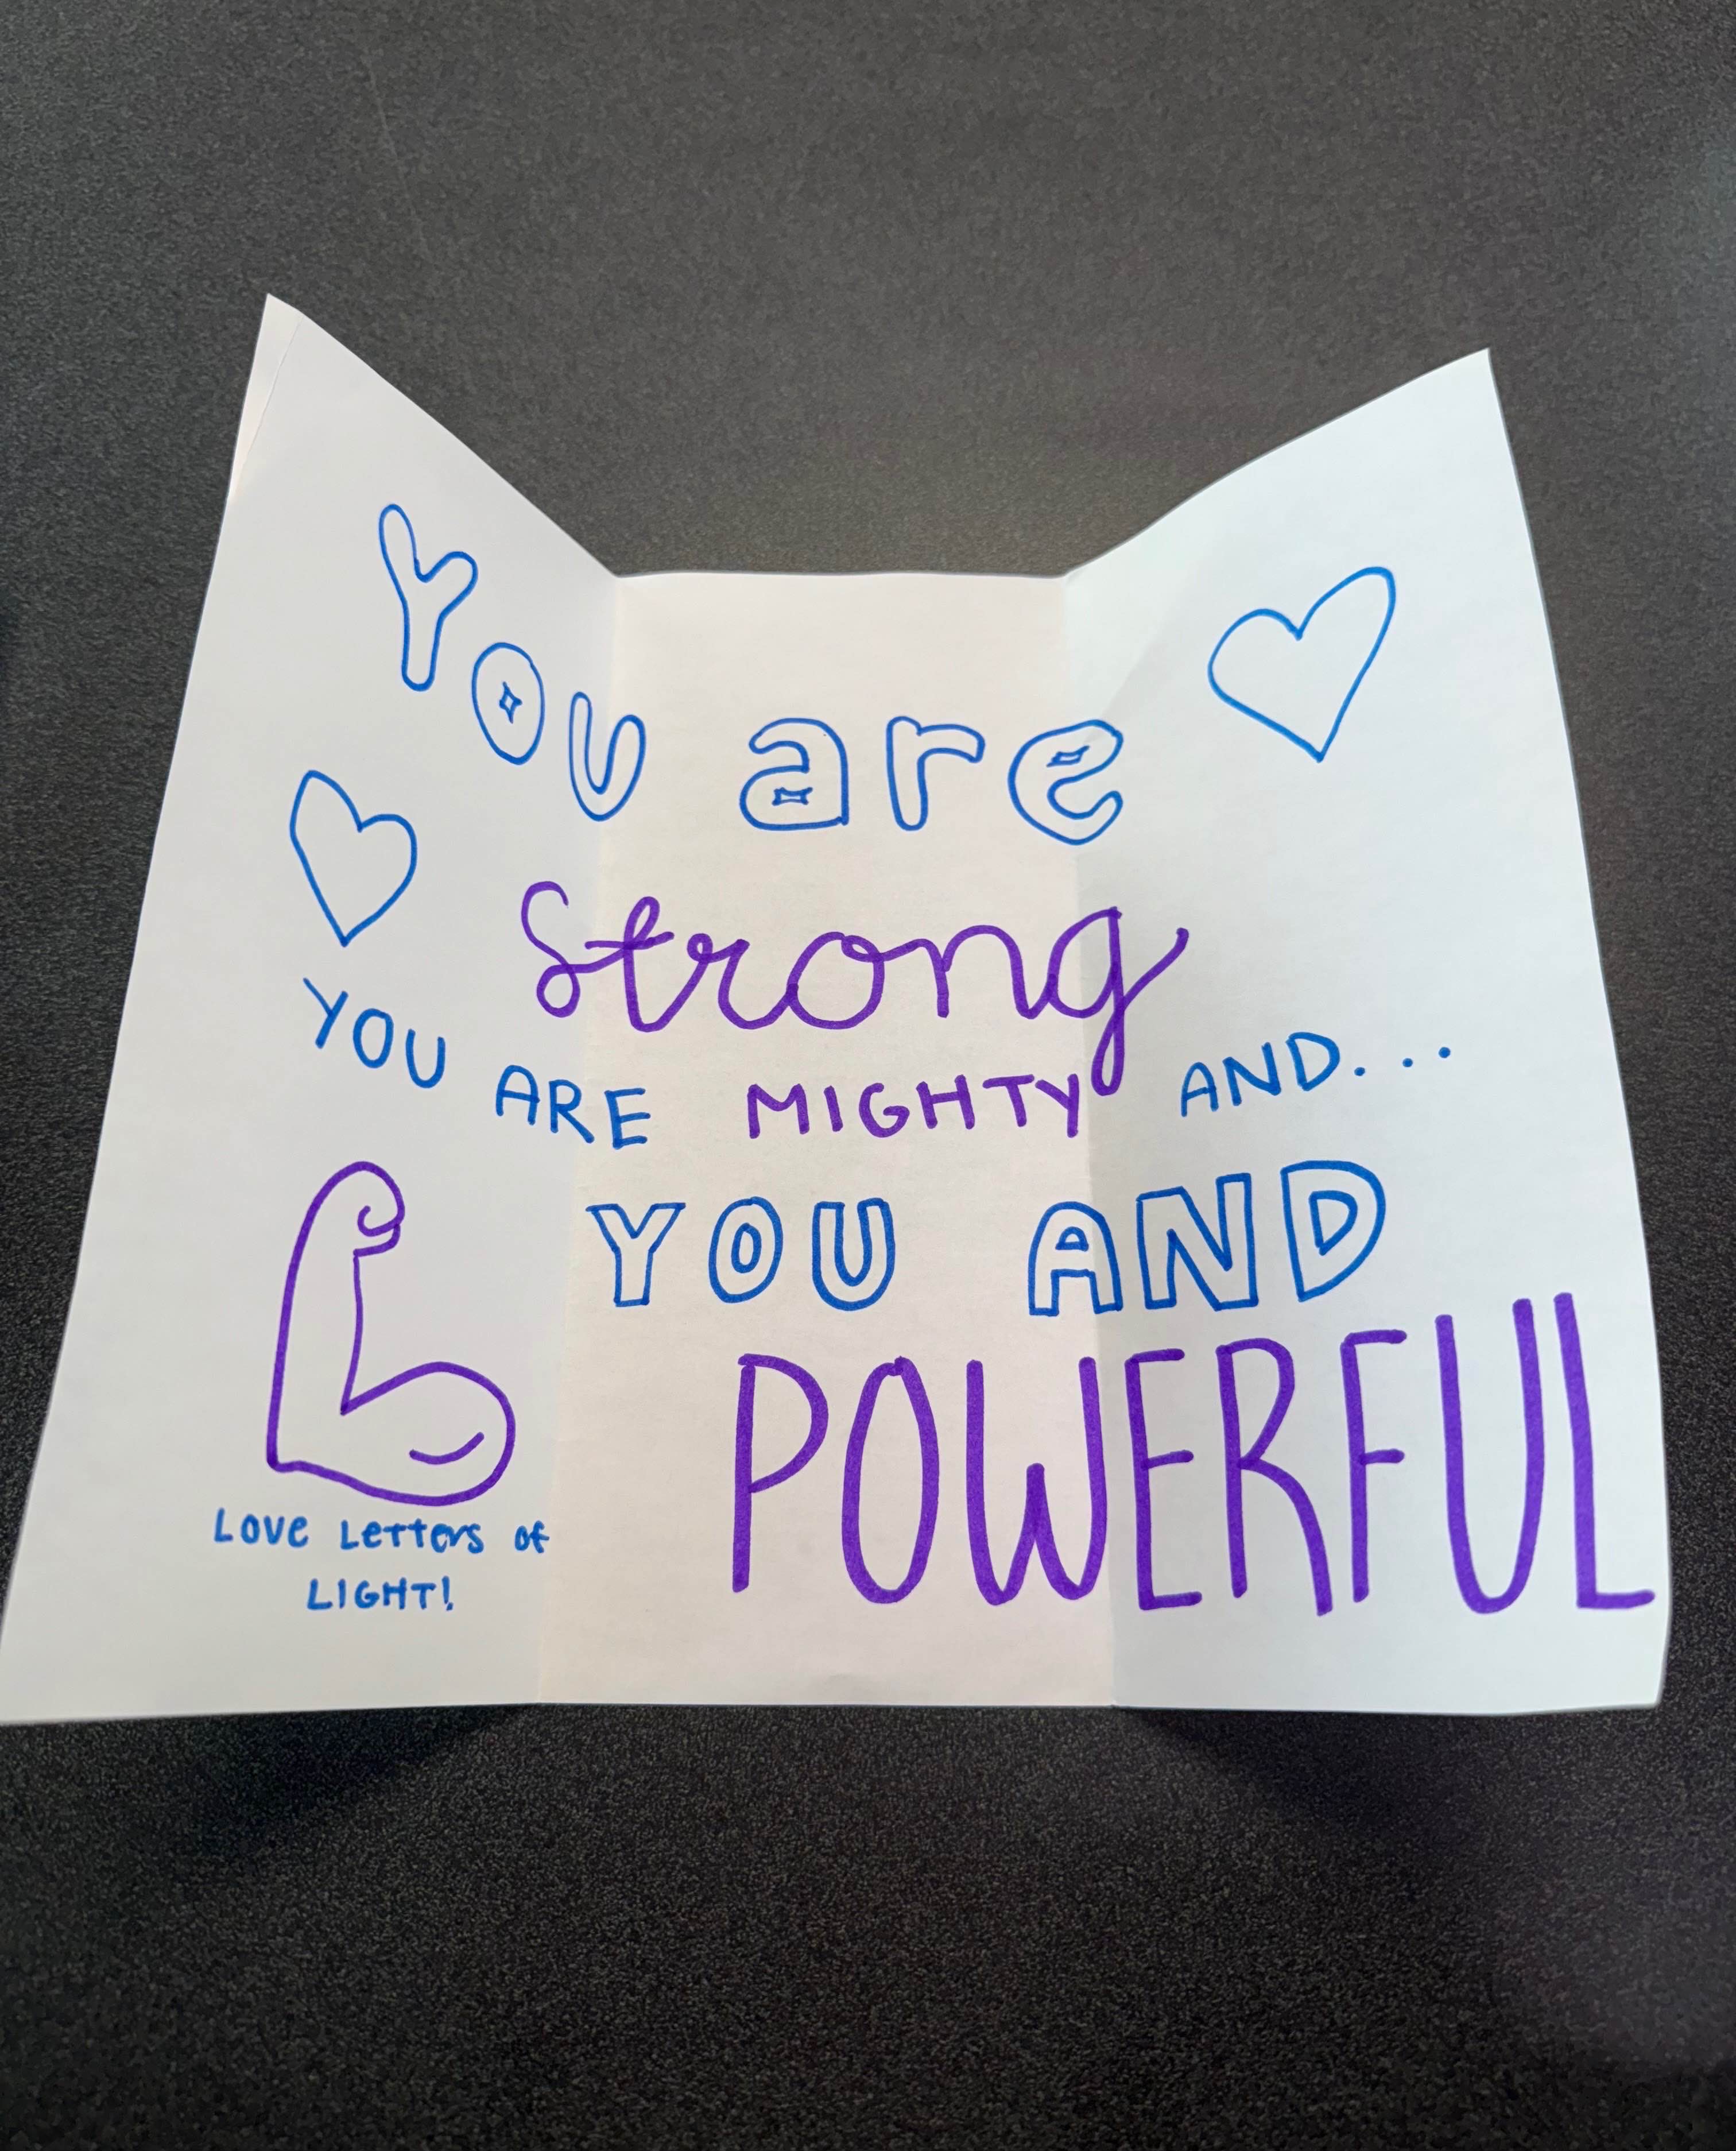 You are
strong
YOU ARE MIGHTY AND...
YOU AND
POWERFUL
Love Letters of
LIGHT!